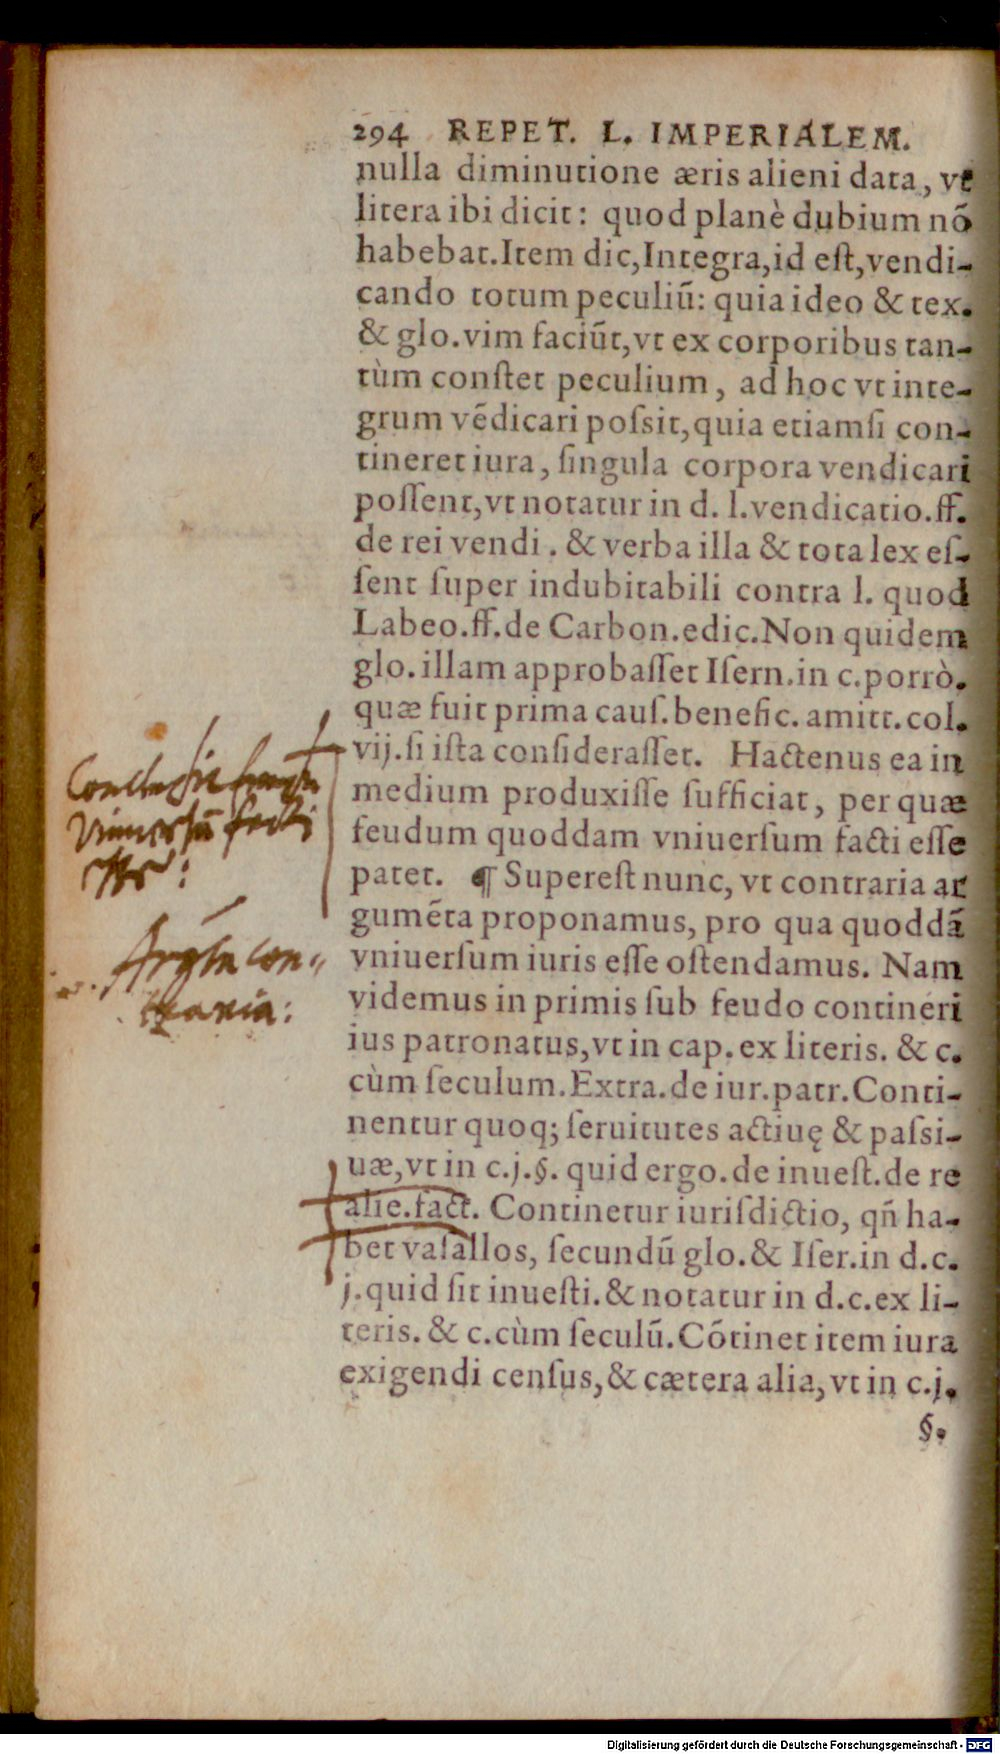 294 REPET. L. IMPERIALEM.
nulla diminutione æris alieni data, vt
litera ibi dicit: quod planè dubium nō
habebat. Item dic, Integra, id eſt, vendi-
cando totum peculiū: quia ideo & tex.
& glo. vim faciūt, vt ex corporibus tan-
tùm conſtet peculium, ad hoc vt inte-
grum vēdicari poſsit, quia etiamſi con-
tineret iura, ſingula corpora vendicari
poſſent, vt notatur in d. l. vendicatio. ff.
de rei vendi. & verba illa & tota lex eſ-
ſent ſuper indubitabili contra l. quod
Labeo. ff. de Carbon. edic. Non quidem
glo. illam approbaſſet Iſern. in c. porrò.
quæ fuit prima cauſ. benefic. amitt. col.
vij. ſi iſta conſideraſſet. Hactenus ea in
medium produxiſſe ſufficiat, per quæ
feudum quoddam vniuerſum facti eſſe
patet. ¶ Supereſt nunc, vt contraria ar
gumēta proponamus, pro qua quoddā
vniuerſum iuris eſſe oſtendamus. Nam
videmus in primis ſub feudo contineri
ius patronatus, vt in cap. ex literis. & c.
cùm ſeculum. Extra. de iur. patr. Conti-
nentur quoq; ſeruitutes actiuę & paſsi-
uæ, vt in c. j. §. quid ergo. de inueſt. de re
alie. fact. Continetur iuriſdictio, qn̄ ha-
bet vaſallos, ſecundū glo. & Iſer. in d. c.
j. quid ſit inueſti. & notatur in d. c. ex li-
teris. & c. cùm ſeculū. Cōtinet item iura
exigendi cenſus, & cætera alia, vt in c. j.
§.
vniuersū facti
con-
traria:
Digitalisierung gefördert durch die Deutsche Forschungsgemeinschaft - DFG